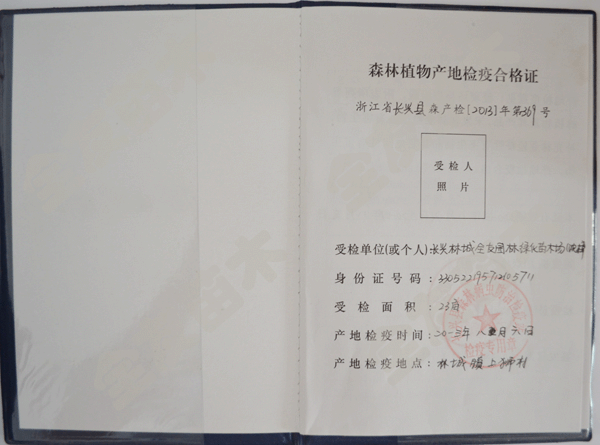 森林植物产地检疫合格证
浙江省长兴县森产检[2013]年第369号
受检人
照片
受检单位(或个人):长兴林城全友园林绿化苗木场
身份证号码:
受检面积:23亩
产地检疫时间:二〇一三年八月六日
产地检疫地点:林城镇上狮村
检疫专用章